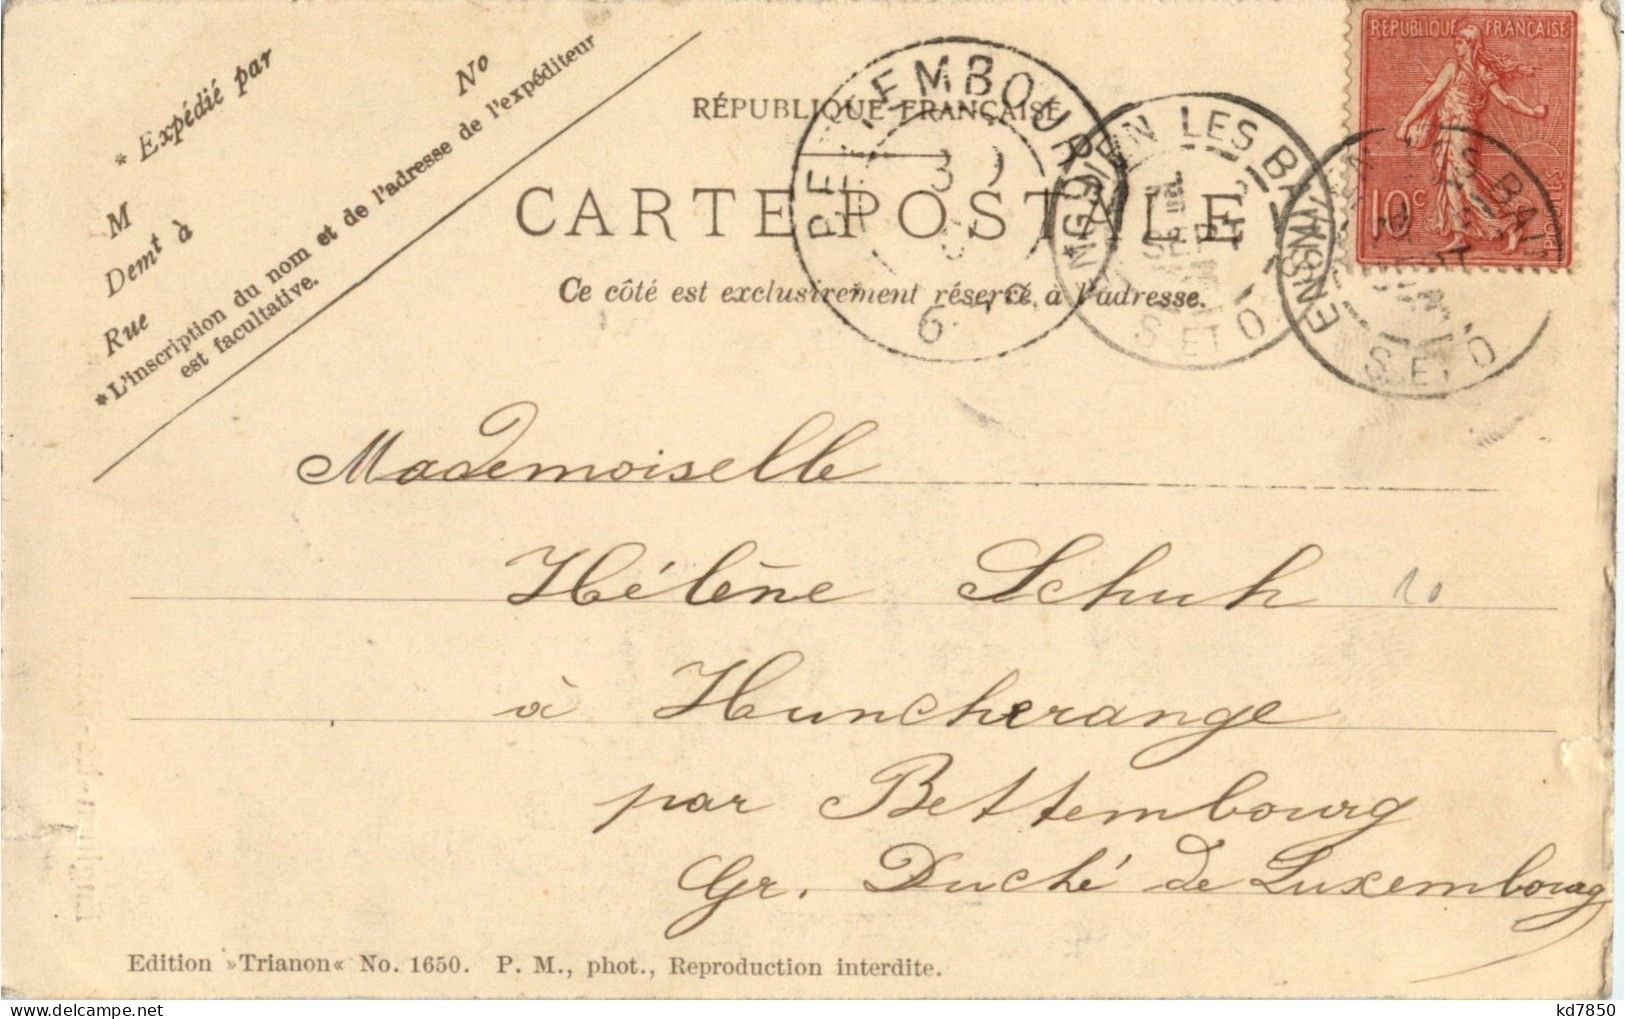 * Expédié par
No
M
Demt à
Rue
* L'inscription du nom et de l'adresse de l'expéditeur
est facultative.
RÉPUBLIQUE FRANÇAISE
CARTE POSTALE
Ce côté est exclusivement réservé à l'adresse.
REPUBLIQUE FRANÇAISE
10c
POSTES
LES BAINS
S ET O
S ET O
Mademoiselle
Hélène Schuh
10
à Huncherange
par Bettembourg
Gr. Duché de Luxembourg
Edition »Trianon« No. 1650. P. M., phot., Reproduction interdite.
kd7850